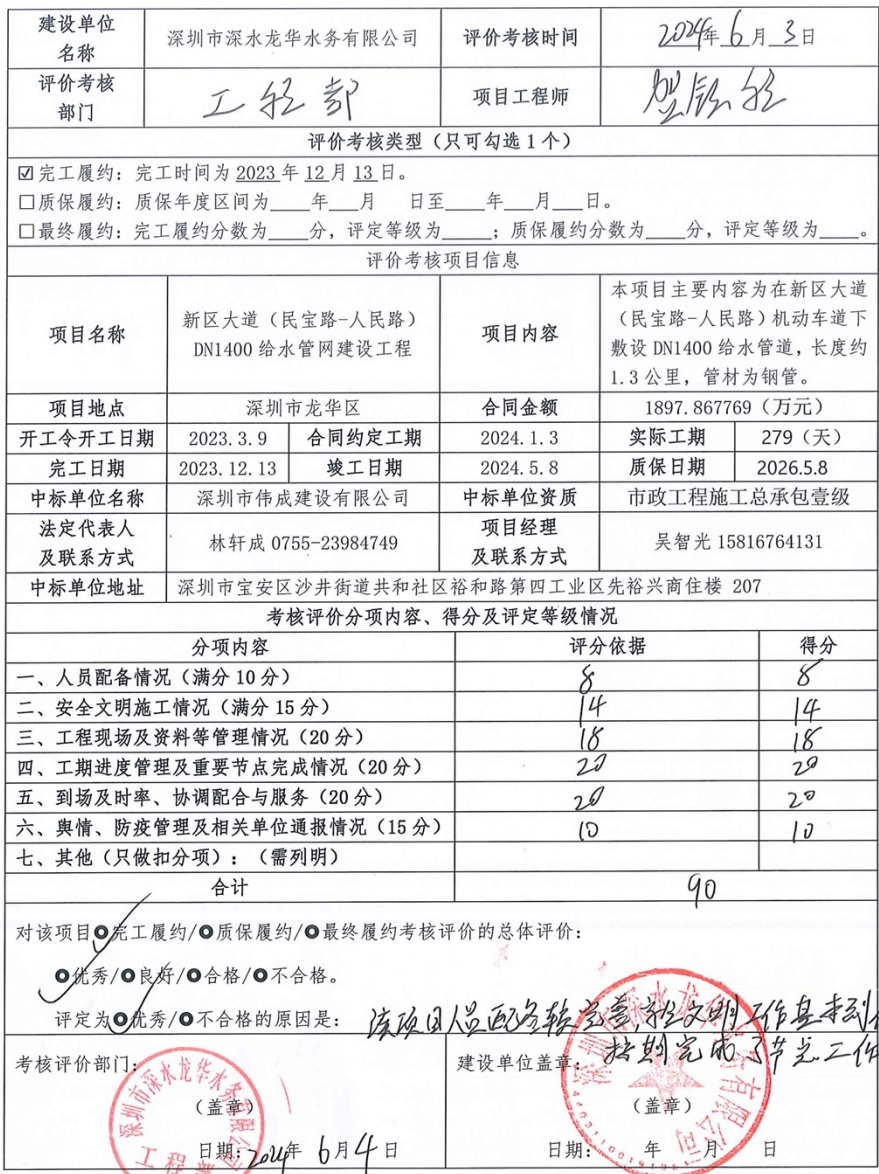 建设单位名称 深圳市深水龙华水务有限公司 评价考核时间 2024年6月3日
评价考核部门 工程部 项目工程师
评价考核类型（只可勾选1个）
☑完工履约：完工时间为2023年12月13日。
□质保履约：质保年度区间为____年___月 日至____年___月___日。
□最终履约：完工履约分数为____分，评定等级为_____；质保履约分数为____分，评定等级为____。
评价考核项目信息
项目名称 新区大道（民宝路-人民路）DN1400给水管网建设工程 项目内容 本项目主要内容为在新区大道（民宝路-人民路）机动车道下敷设DN1400给水管道，长度约1.3公里，管材为钢管。
项目地点 深圳市龙华区 合同金额 1897.867769（万元）
开工令开工日期 2023.3.9 合同约定工期 2024.1.3 实际工期 279（天）
完工日期 2023.12.13 竣工日期 2024.5.8 质保日期 2026.5.8
中标单位名称 深圳市伟成建设有限公司 中标单位资质 市政工程施工总承包壹级
法定代表人及联系方式 林轩成 0755-23984749 项目经理及联系方式 吴智光 15816764131
中标单位地址 深圳市宝安区沙井街道共和社区裕和路第四工业区先裕兴商住楼 207
考核评价分项内容、得分及评定等级情况
分项内容 评分依据 得分
一、人员配备情况（满分10分） 8 8
二、安全文明施工情况（满分15分） 14 14
三、工程现场及资料等管理情况（20分） 18 18
四、工期进度管理及重要节点完成情况（20分） 20 20
五、到场及时率、协调配合与服务（20分） 20 20
六、舆情、防疫管理及相关单位通报情况（15分） 10 10
七、其他（只做扣分项）：（需列明）
合计 90
对该项目完工履约/质保履约/最终履约考核评价的总体评价：
优秀/良好/合格/不合格。
评定为优秀/不合格的原因是：该项目人员配备较完善，安全文明工作基本到
按期完成了节点工作
考核评价部门： 建设单位盖章：
（盖章） （盖章）
日期：2024年6月4日 日期： 年 月 日
深圳市深水龙华水务有限公司
工程部
深圳市深水龙华水务有限公司